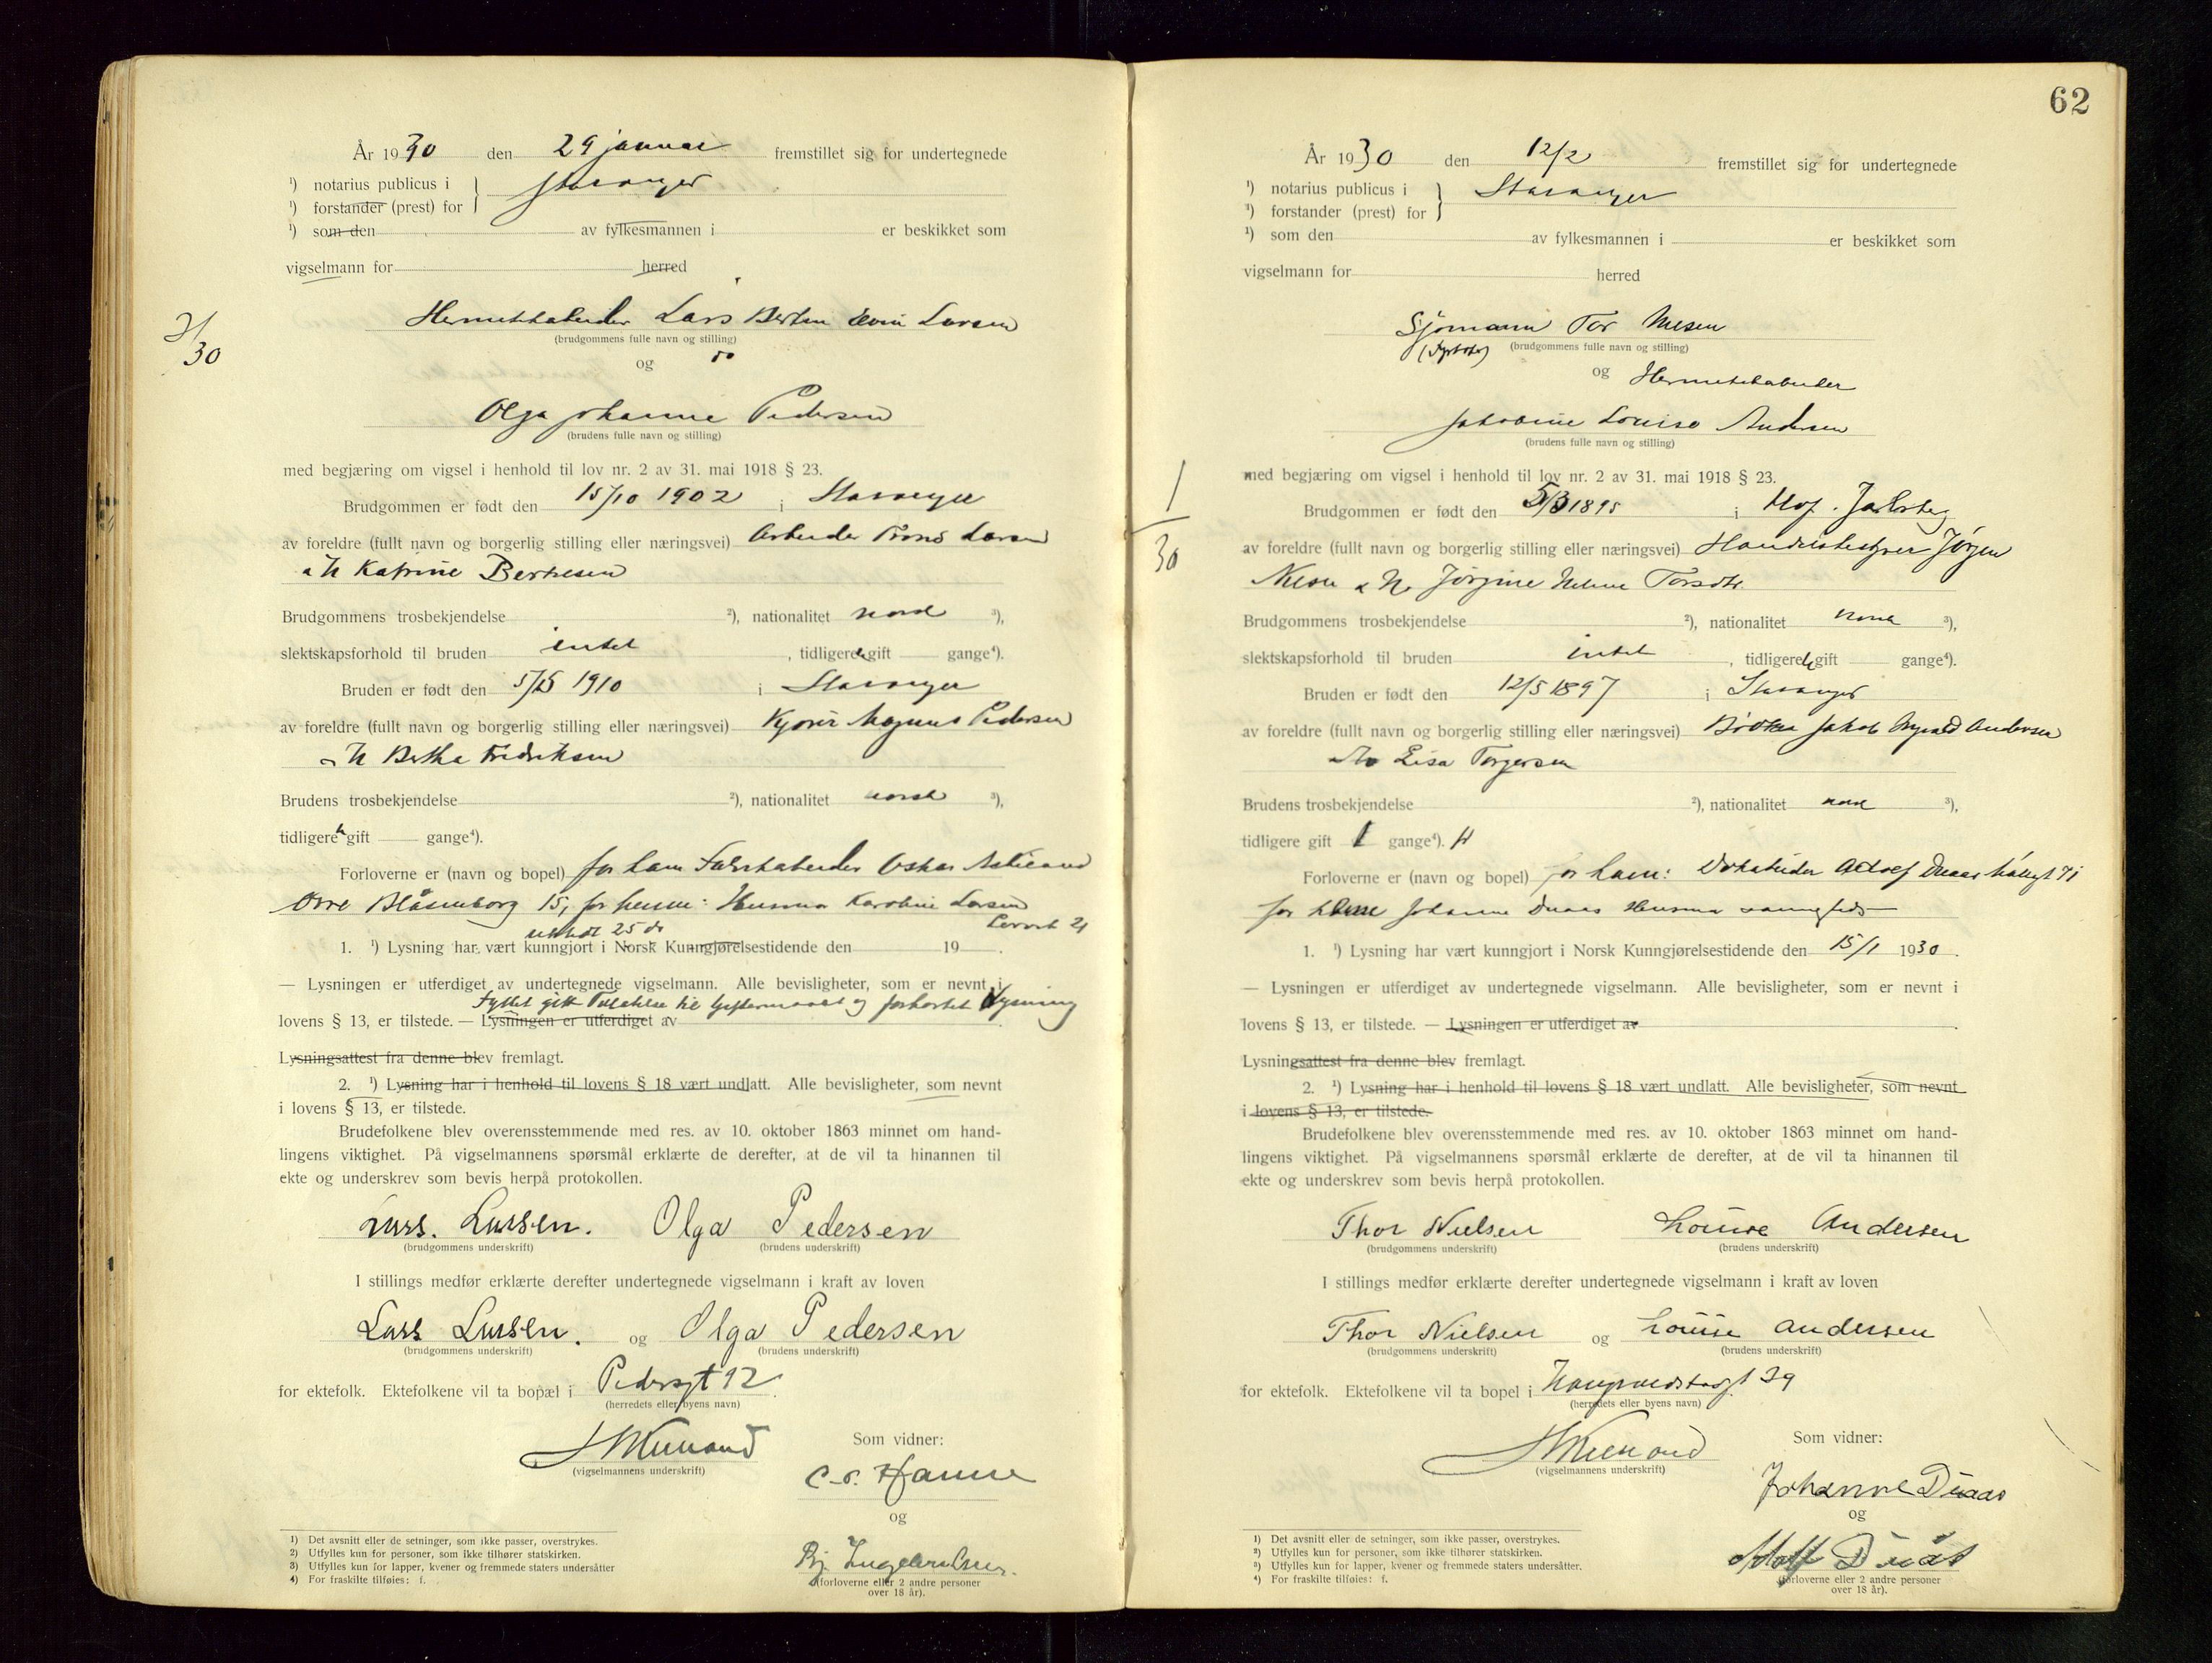 År 1930 den 29 januar fremstillet sig for undertegnede
¹) notarius publicus i } Stavanger
¹) forstander (prest) for
¹) som den av fylkesmannen i er beskikket som
vigselmann for herred
2/30
Hermetikkarbeider Lars Larsen
(brudgommens fulle navn og stilling)
og do
Olga Johanne Pedersen
(brudens fulle navn og stilling)
med begjæring om vigsel i henhold til lov nr. 2 av 31. mai 1918 § 23.
Brudgommen er født den 15/10 1902 i Stavanger
av foreldre (fullt navn og borgerlig stilling eller næringsvei) Arbeider Larsen
& H Katrine Bertesen
Brudgommens trosbekjendelse ²), nationalitet norsk ³),
slektskapsforhold til bruden intet , tidligere gift gange⁴).
Bruden er født den 5/5 1910 i Stavanger
av foreldre (fullt navn og borgerlig stilling eller næringsvei) Kjører Magnus Pedersen
& H Bertha Fredriksen
Brudens trosbekjendelse ²), nationalitet norsk ³),
tidligere gift gange⁴).
Forloverne er (navn og bopel) for ham Fabrikarbeider Oskar
Øvre Blåsenborg 15, for henne: Husmor Karoline Larsen
utstedt 25 ds
1. ¹) Lysning har vært kunngjort i Norsk Kunngjørelsestidende den 19 .
— Lysningen er utferdiget av undertegnede vigselmann. Alle bevisligheter, som er nevnt i
Fylket gitt Tillatelse til Giftermaalet og forkortet Lysning
lovens § 13, er tilstede. — Lysningen er utferdiget av
Lysningsattest fra denne blev fremlagt.
2. ¹) Lysning har i henhold til lovens § 18 vært undlatt. Alle bevisligheter, som nevnt
i lovens § 13, er tilstede.
Brudefolkene blev overensstemmende med res. av 10. oktober 1863 minnet om hand-
lingens viktighet. På vigselmannens spørsmål erklærte de derefter, at de vil ta hinannen til
ekte og underskrev som bevis herpå protokollen.
Lars. Larsen. Olga Pedersen
(brudgommens underskrift) (brudens underskrift)
I stillings medfør erklærte derefter undertegnede vigselmann i kraft av loven
Lars Larsen. og Olga Pedersen
(brudgommens underskrift) (brudens underskrift)
for ektefolk. Ektefolkene vil ta bopæl i Pedersgt 92
(herredets eller byens navn)
(vigselmannens underskrift)
Som vidner:
og
(forloverne eller 2 andre personer
over 18 år).
1) Det avsnitt eller de setninger, som ikke passer, overstrykes.
2) Utfylles kun for personer, som ikke tilhører statskirken.
3) Utfylles kun for lapper, kvener og fremmede staters undersåtter
4) For fraskilte tilføies: f.
62
År 1930 den 12/2 fremstillet sig for undertegnede
¹) notarius publicus i } Stavanger
¹) forstander (prest) for
¹) som den av fylkesmannen i er beskikket som
vigselmann for herred
1/30
Sjømann Tor Nilsen
(Fyrbøter) (brudgommens fulle navn og stilling)
og Hermetikkarbeider
Jakobine Louise Andersen
(brudens fulle navn og stilling)
med begjæring om vigsel i henhold til lov nr. 2 av 31. mai 1918 § 23.
Brudgommen er født den 5/3 1895 i Hof. Jarlsberg
av foreldre (fullt navn og borgerlig stilling eller næringsvei) Handelsbestyrer Jørgen
Nilsen & H. Jørgine Helene Torsdtr.
Brudgommens trosbekjendelse ²), nationalitet norsk ³),
slektskapsforhold til bruden intet , tidligere gift gange⁴).
Bruden er født den 12/5 1897 i Stavanger
av foreldre (fullt navn og borgerlig stilling eller næringsvei) Bødker Jakob Andersen
Lisa Torgersen
Brudens trosbekjendelse ²), nationalitet norsk ³),
tidligere gift 1 gange⁴).
Forloverne er (navn og bopel) for ham: Adolf
for henne Johanne Husmor sammesteds
1. ¹) Lysning har vært kunngjort i Norsk Kunngjørelsestidende den 15/1 1930 .
— Lysningen er utferdiget av undertegnede vigselmann. Alle bevisligheter, som er nevnt i
lovens § 13, er tilstede. — Lysningen er utferdiget av
Lysningsattest fra denne blev fremlagt.
2. ¹) Lysning har i henhold til lovens § 18 vært undlatt. Alle bevisligheter, som nevnt
i lovens § 13, er tilstede.
Brudefolkene blev overensstemmende med res. av 10. oktober 1863 minnet om hand-
lingens viktighet. På vigselmannens spørsmål erklærte de derefter, at de vil ta hinannen til
ekte og underskrev som bevis herpå protokollen.
Thor Nielsen Louise Andersen
(brudgommens underskrift) (brudens underskrift)
I stillings medfør erklærte derefter undertegnede vigselmann i kraft av loven
Thor Nielsen og Louise Andersen
(brudgommens underskrift) (brudens underskrift)
for ektefolk. Ektefolkene vil ta bopel i 39
(herredets eller byens navn)
(vigselmannens underskrift)
Som vidner:
Johanne
og
Adolf
(forloverne eller 2 andre personer
over 18 år).
¹) Det avsnitt eller de setninger, som ikke passer, overstrykes.
²) Utfylles kun for personer, som ikke tilhører statskirken.
³) Utfylles kun for lapper, kvener og fremmede staters undersåtter.
⁴) For fraskilte tilføies: f.